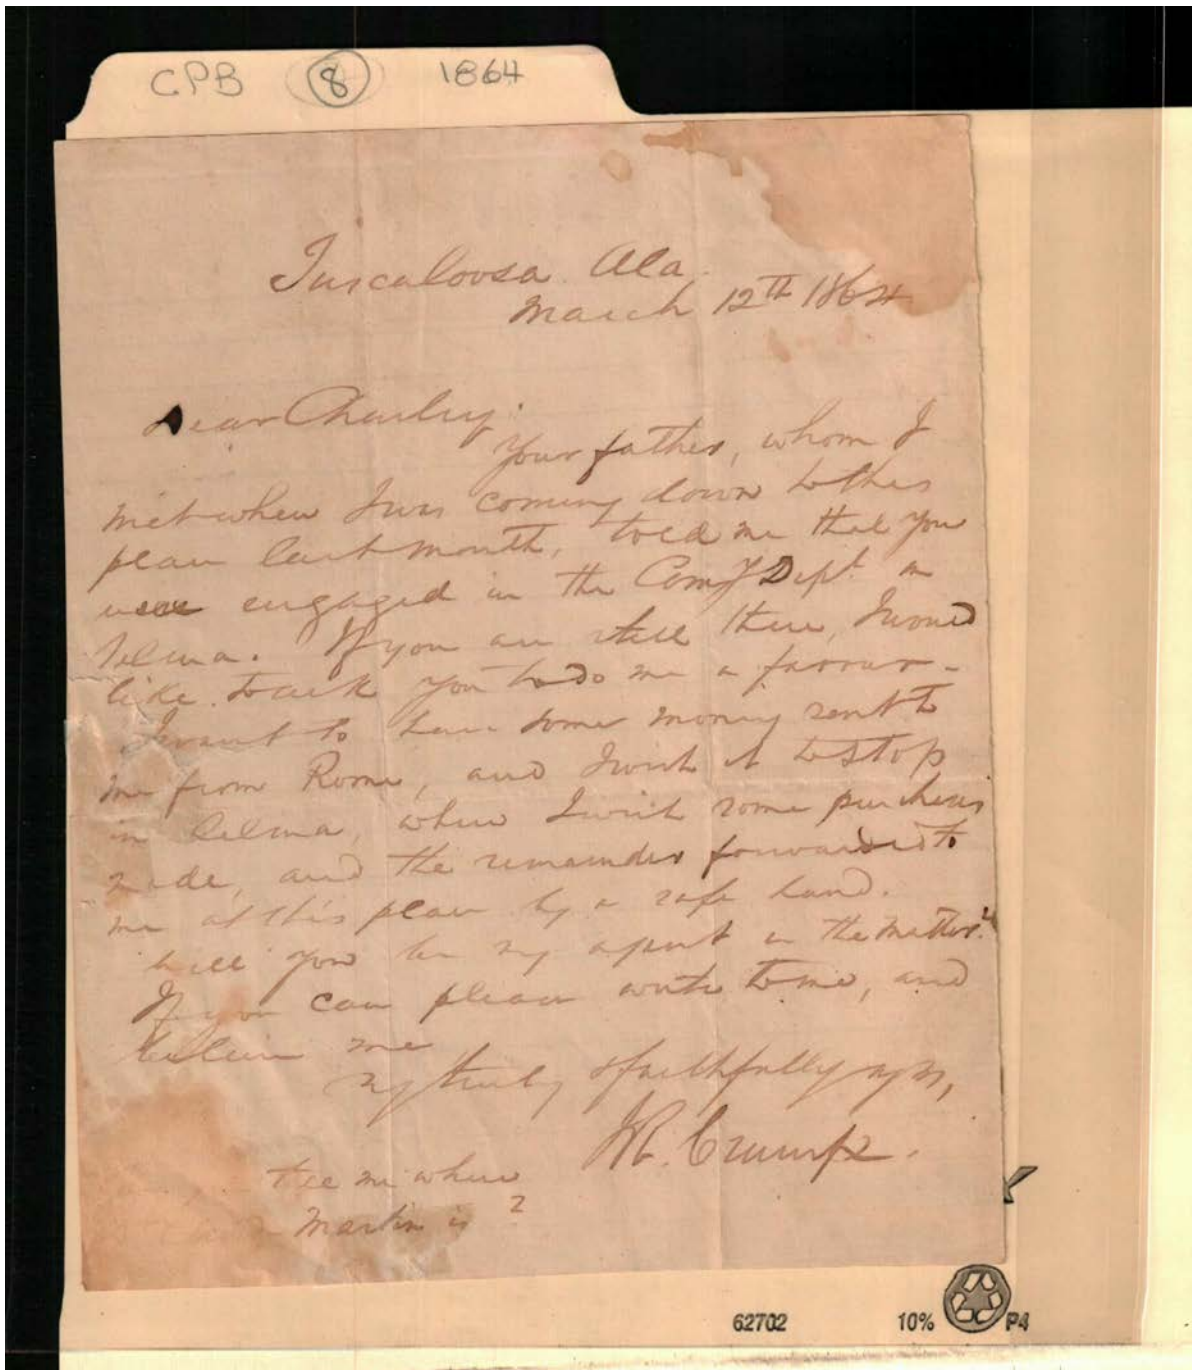 CPB 8 1864
Tuscaloosa. Ala.
March 12TH 1864
Dear Charley:
Your father, whom I
met when I was coming down to this
place last month, told me that you
were engaged in the Com'y Dept. in
Selma. If you are still there, I would
like to ask you to do me a favour -
I want to have some money sent to
me from Rome, and I wish it to stop
in Selma, where I wish some purchases
made, and the remainder forwarded to
me at this place by a safe hand.
Will you be my agent in the matter?
If you can please write to me, and
believe me
truly & faithfully yrs,
Crump.
tell me where
Martin is?
62702 10% P4